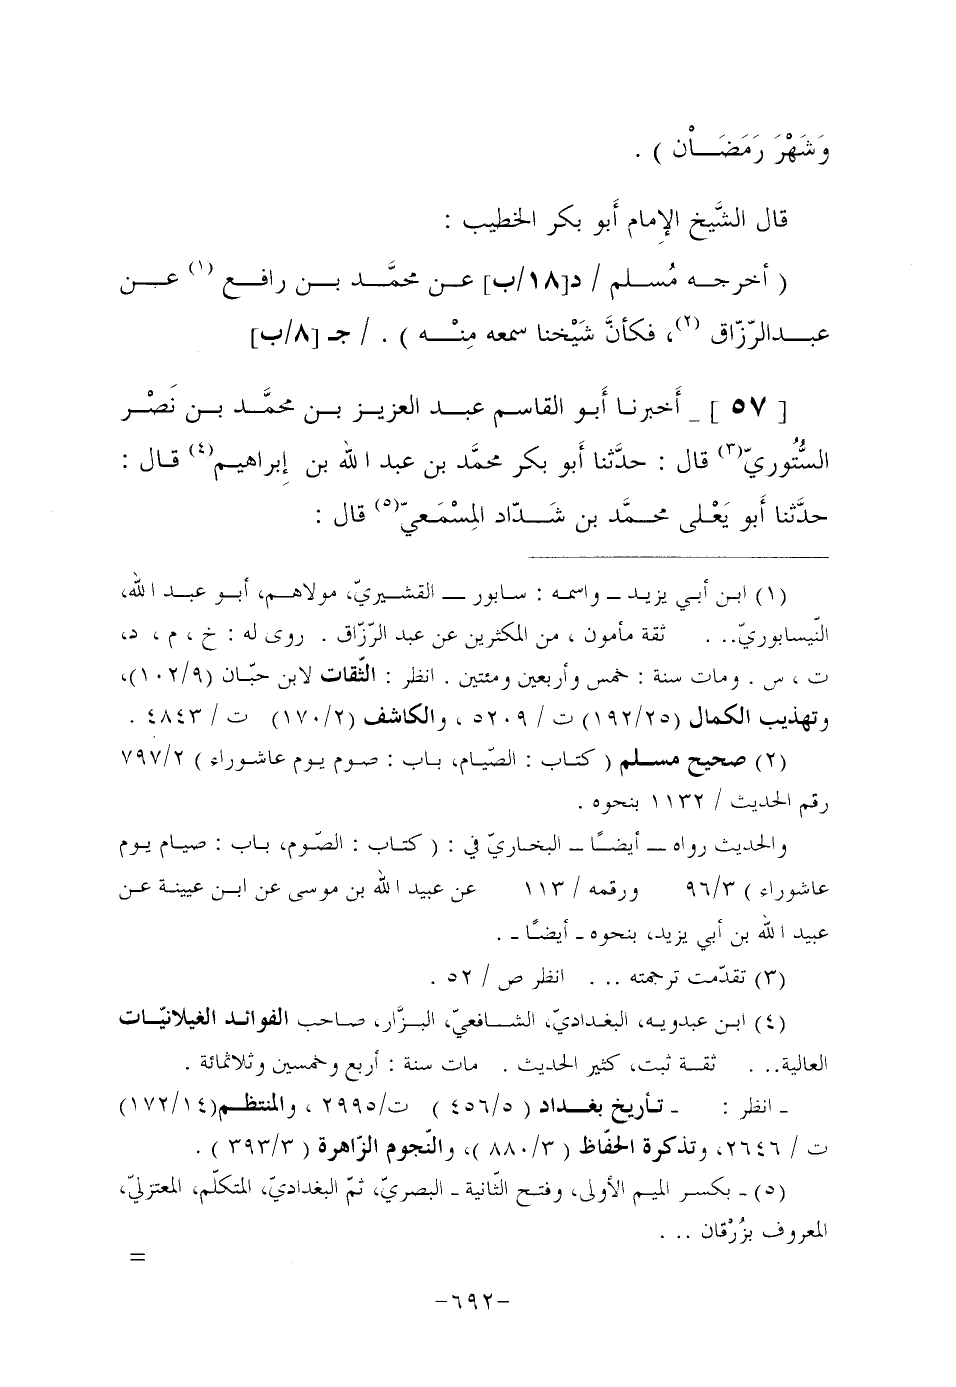 وَشَهْرَ رَمَضَـــاْن ) .
قال الشَّيخ الإمام أَبو بكر الخطيب :
( أخرجـه مُسـلم / د[١٨/ب] عـن محمَّـد بـن رافـع (١) عـن
عبـدالرّزّاق (٢)، فكأنَّ شَيْخنا سمعه مِنْـه ) . / جـ [٨/ب]
[ ٥٧ ] _ أَخبرنـا أَبـو القاسـم عبـد العزيـز بـن محمَّـد بـن نَصْـر
السُّتُوريّ(٣) قال : حدَّثنا أَبو بكر محمَّد بن عبد الله بن إبراهيـم(٤) قـال :
حدَّثنا أَبو يَعْـلى محمـد بن شـدّاد المِسْمَـعيّ(٥) قال :
(١) ابـن أبـي يزيـد ـ واسمـه : سـابور ـ القشـيريّ، مولاهـم، أبـو عبـد الله،
النّيسابوريّ. . . ثقة مأمون ، من المكثرين عن عبد الرّزّاق . روى له : خ ، م ، د،
ت ، س . ومات سنة : خمس وأربعين ومئتين . انظر : الثّقات لابن حبّـان (١٠٢/٩)،
وتهذيب الكمال (١٩٢/٢٥) ت / ٥٢٠٩ ، والكاشف (١٧٠/٢) ت / ٤٨٤٣ .
(٢) صحيح مسـلم ( كتـاب : الصّيام، بـاب : صـوم يـوم عاشـوراء ) ٧٩٧/٢
رقم الحديث / ١١٣٢ بنحوه .
والحديث رواه ـ أيضًـا ـ البخـاريّ في : ( كتـاب : الصّـوم، بـاب : صيـام يـوم
عاشوراء ) ٩٦/٣ ورقمه / ١١٣ عن عبيد الله بن موسى عن ابـن عيينـة عـن
عبيد الله بن أبي يزيد، بنحوه ـ أيضًـا ـ .
(٣) تقدّمت ترجمته . . . انظر ص / ٥٢ .
(٤) ابـن عبدويـه، البغـداديّ، الشـافعيّ، الـبزَّار، صـاحب الفوائـد الغيلانيّـات
العالية. . . ثقـة ثبت، كثير الحديث . مات سنة : أربع وخمسين وثلاثمائة .
ـ انظر : ـ تـأريخ بغـداد ( ٤٥٦/٥ ) ت/٢٩٩٥ ، والمنتظـم(١٧٢/١٤)
ت / ٢٦٤٦، وتذكرة الحفّاظ ( ٨٨٠/٣ )، والنّجوم الزّاهرة ( ٣٩٣/٣ ) .
(٥) ـ بكسـر الميـم الأولى، وفتـح الثّانيـة ـ البصـريّ، ثمّ البغداديّ، المتكلّم، المعتزليّ،
المعروف بزُرْقان . . .
=
-٦٩٢-